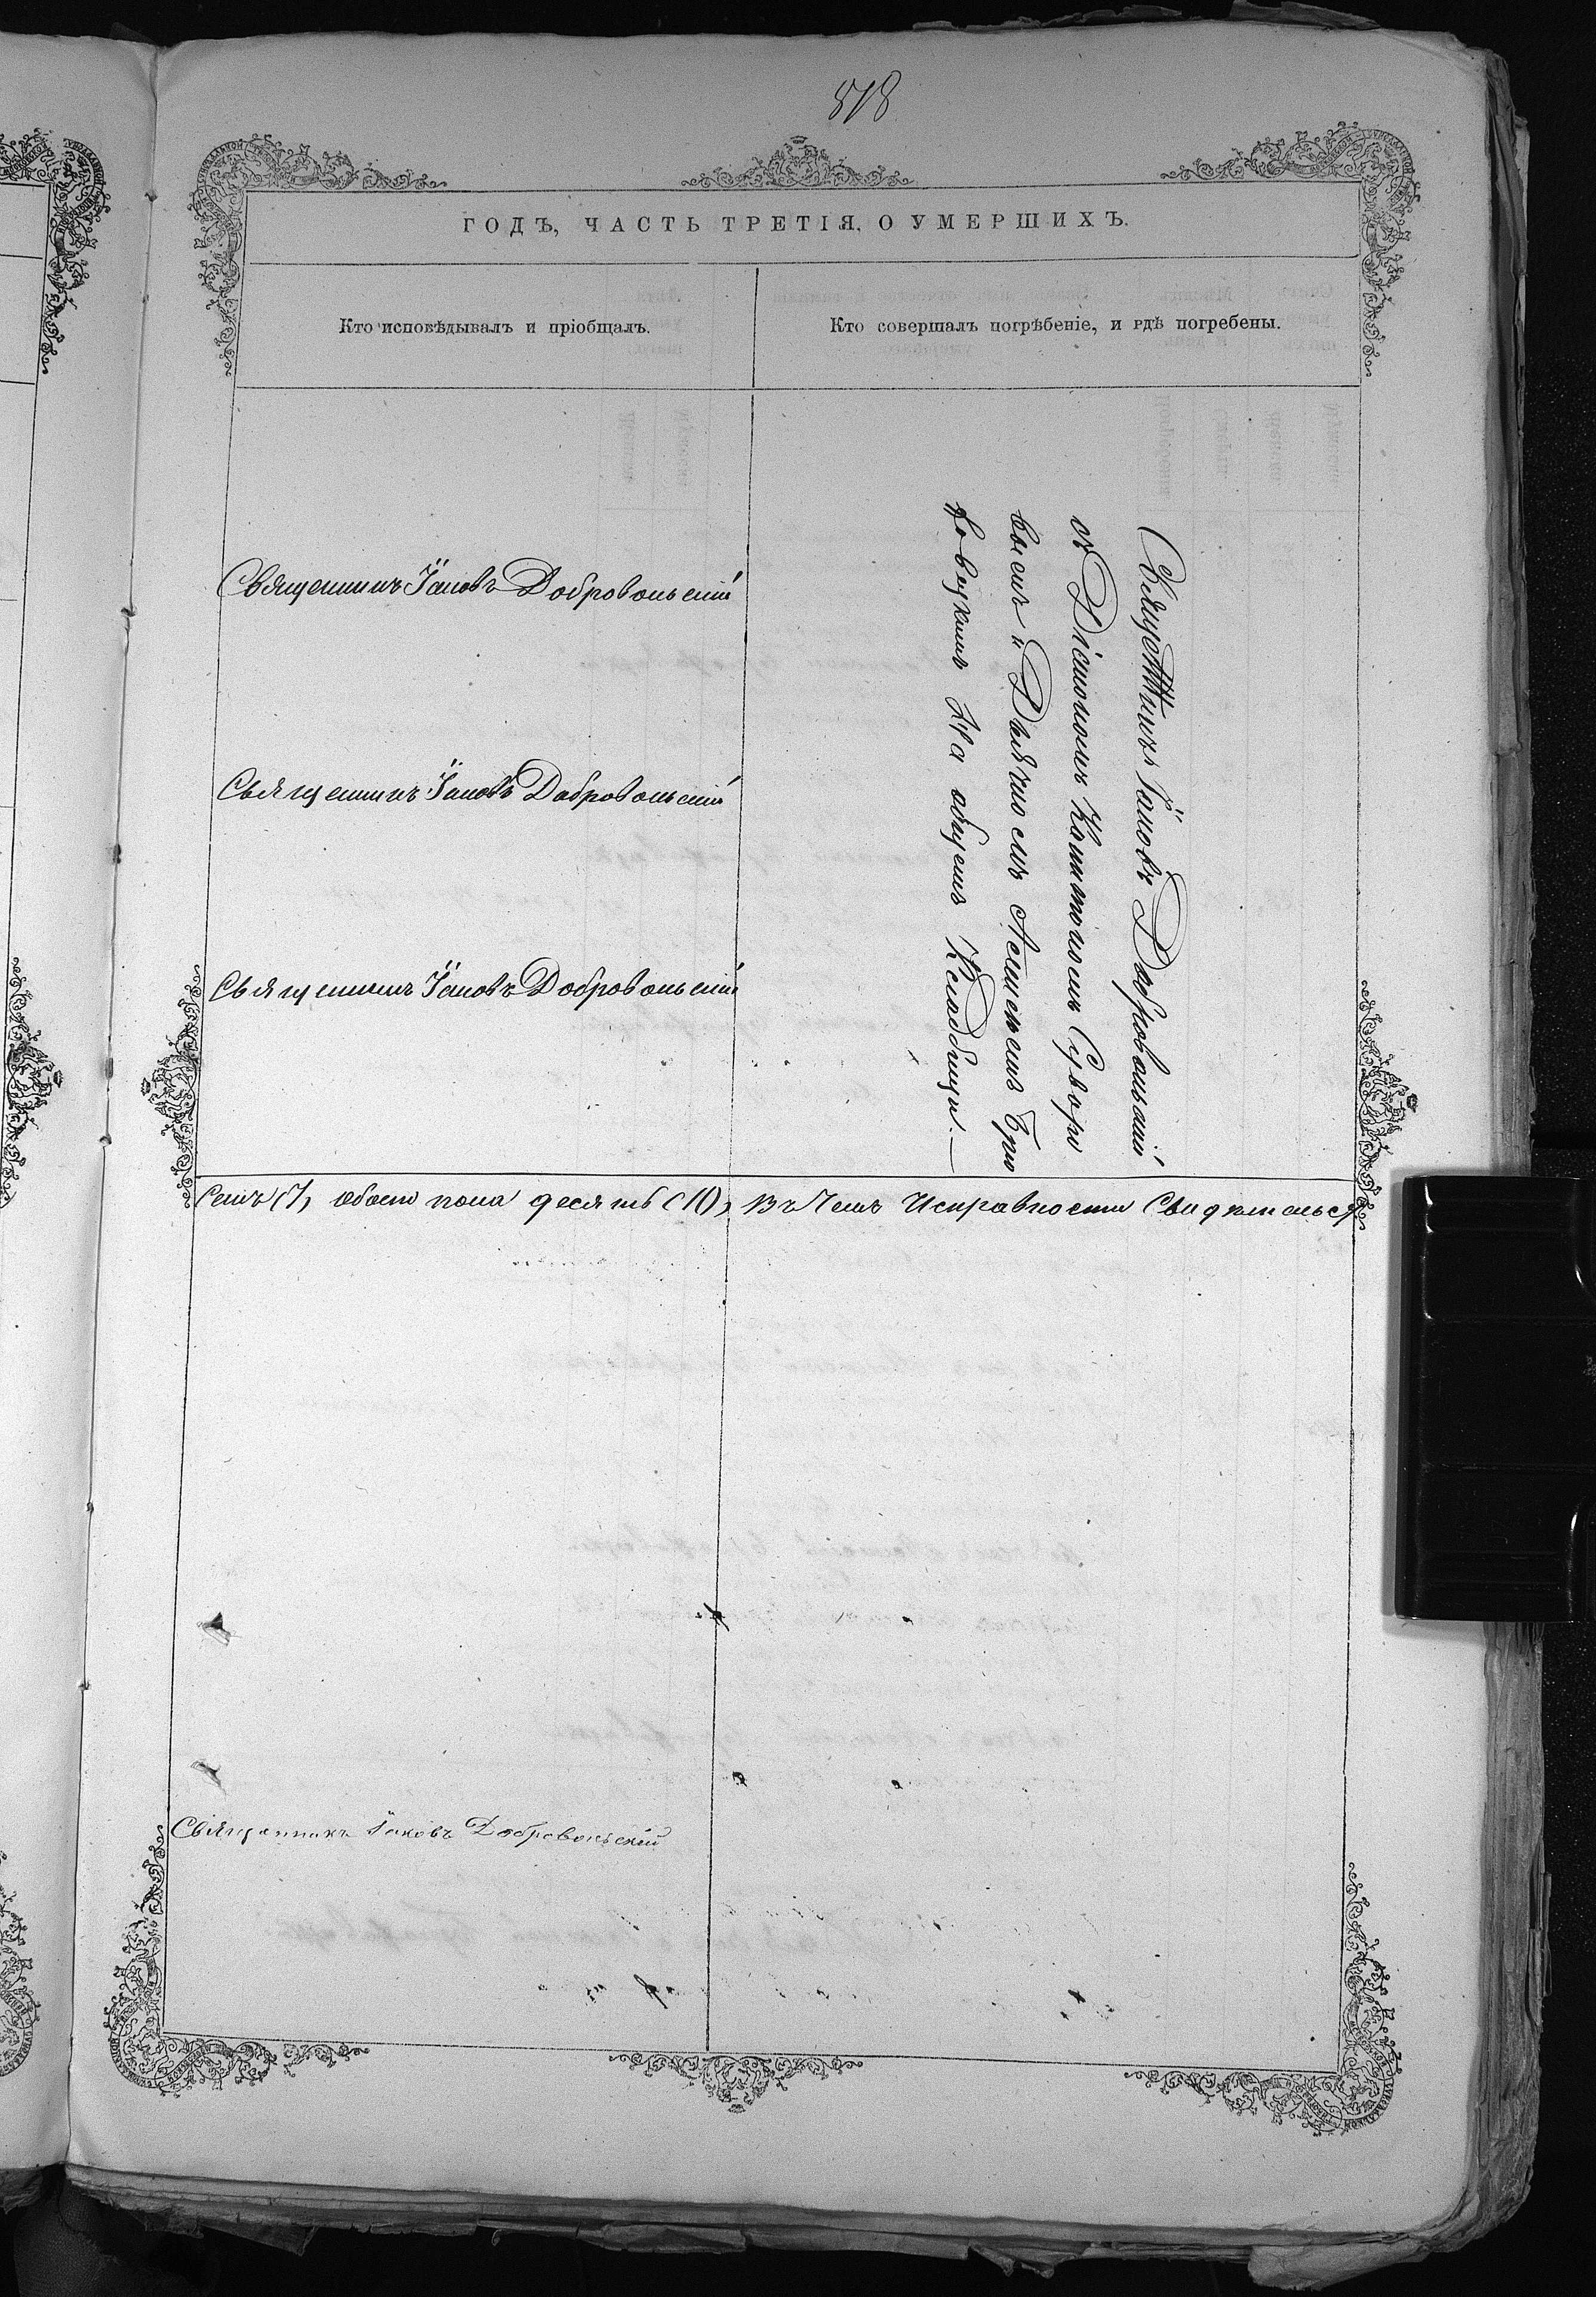 518
ГОДЪ, ЧАСТЬ ТРЕТІЯ, О УМЕРШИХЪ.
Кто исповѣдывалъ и пріобщалъ.
Кто совершалъ погрѣбеніе, и гдѣ погребены.
Священникъ Іаковъ Добровольскій
Священникъ Іаковъ Добровольскій
Священникъ Іаковъ Добровольскій
Священникъ Іаковъ Добровольскій
съ Діакономъ Капитономъ Суворо
вымъ и Дьячкомъ
на общемъ Кладбищи.—
Семь (7, обоего пола десять (10), въ чемъ Исправности Свидѣтельст
Священникъ Іаковъ Добровольскій